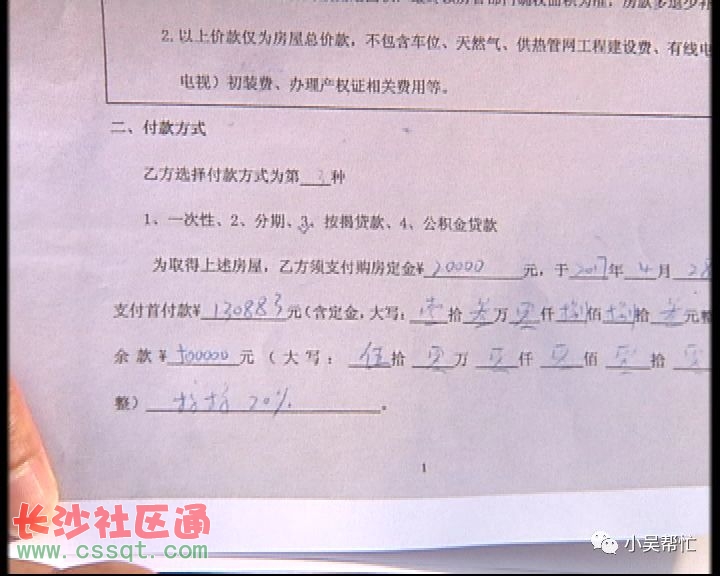 2.以上价款仅为房屋总价款，不包含车位、天然气、供热管网工程建设费、有线电
电视）初装费、办理产权证相关费用等。
二、付款方式
乙方选择付款方式为第 3 种
1、一次性、2、分期、3、按揭贷款、4、公积金贷款
为取得上述房屋，乙方须支付购房定金¥ 20000 元，于 2017 年 4 月 28
支付首付款¥ 130883 元(含定金,大写: 壹 拾 叁 万 零 仟 捌 佰 捌 拾 叁 元整
余款¥ 500000 元（大写： 伍 拾 零 万 零 仟 零 佰 零 拾 零
整） 20% 。
1
长沙社区通
www.cssqt.com
小吴帮忙